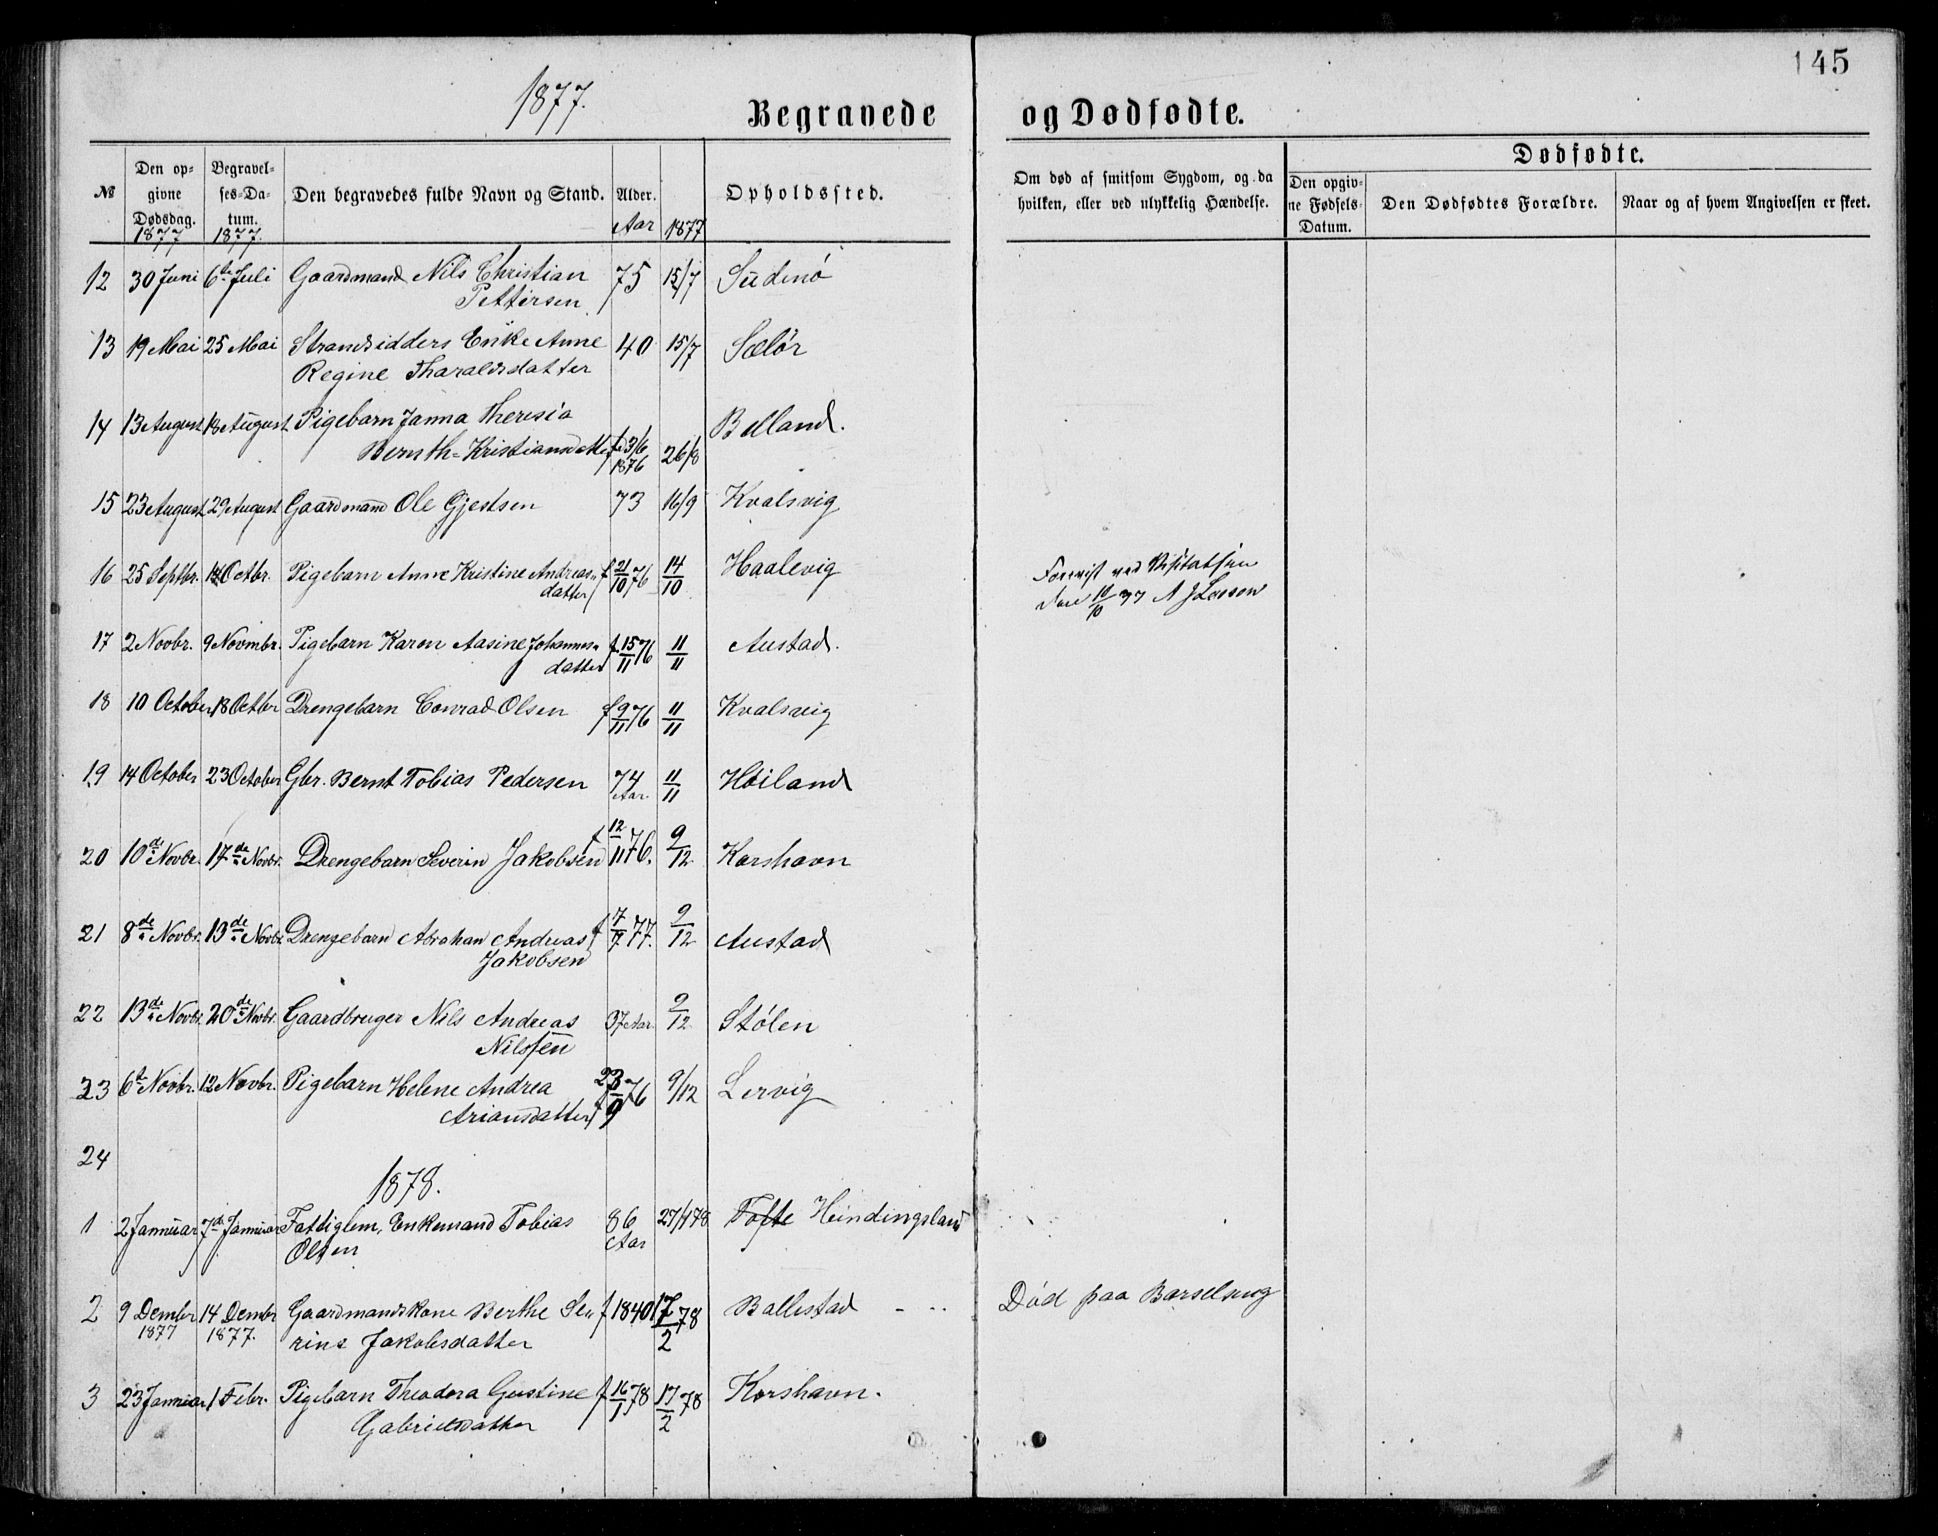 145
1877.
Begravede og Dødfødte.
№
Den opgivne Dødsdag. 1877
Begravelses-Datum. 1877.
Den begravedes fulde Navn og Stand.
Alder. Aar
1877
Opholdssted.
Om død af smitsom Sygdom, og da hvilken, eller ved ulykkelig Hændelse.
Dødfødte.
Den opgivne Fødsels-Datum.
Den Dødfødtes Forældre.
Naar og af hvem Angivelsen er skeet.
12 30 Juni 6te Juli Gaardmand Nils Christian 75 15/7
Pettersen
13 19 Mai 25 Mai Strandsidders Enke Anne 40 15/7 Sælør
Regine Tharaldsdatter
14 13 August 18 August Pigebarn Janna Theresia Bølland.
Bernth-Kristiansdatter f 3/6 1876 26/8
15 23 August 29 August Gaardmand Ole Gjestsen 73 16/9 Kvalsvig
16 25 Septbr. Octbr. Pigebarn Anne Kristine Andreas- f 21/10 76 14/10 Haalevig
datter
Forevist ved Visitatsen
den 10/10 77
17 2 Novbr. 9 Novmbr. Pigebarn Karen Aasine Johannes- f 15/11 76 11/11 Austad.
datter
18 10 October 18 Octbr Drengebarn Conrad Olsen f 9/11 76 11/11 Kvalsvig
19 14 October 23 October Gbr. Bernt Tobias Pedersen 74 Aar. 11/11 Høiland
20 10de Novbr. 17de Novbr. Drengebarn Severin Jakobsen f 12/11 76. 9/12 Korshavn
21 8de Novbr. 13de Novbr. Drengebarn Abraham Andreas f 7/7 77. 9/12 Austad
Jakobsen
22 13de Novbr. 20de Novbr. Gaardbruger Nils Andreas 37 Aar. 9/12 Stølen
Nilssen
23 6te Novbr. 12 Novbr. Pigebarn Helene Andrea f 23/9 76 9/12 Lervig
Ariansdatter
24
1878.
1 2 Januar 7de Januar Fattiglem, Enkemand Tobias 86 Aar Tofte Heindingsland
Olsen
2 9 Dember 1877 14 Dembr 1877. Gaardmandskone Berthe Se- f 1840 17/2 78 Ballestad - - Død paa Barselseng
rine Jakobsdatter
3 23 Januar 1 Febr. Pigebarn Theodora Gustine f 16/1 78 17/2 78 Korshavn.
Gabrielsdatter